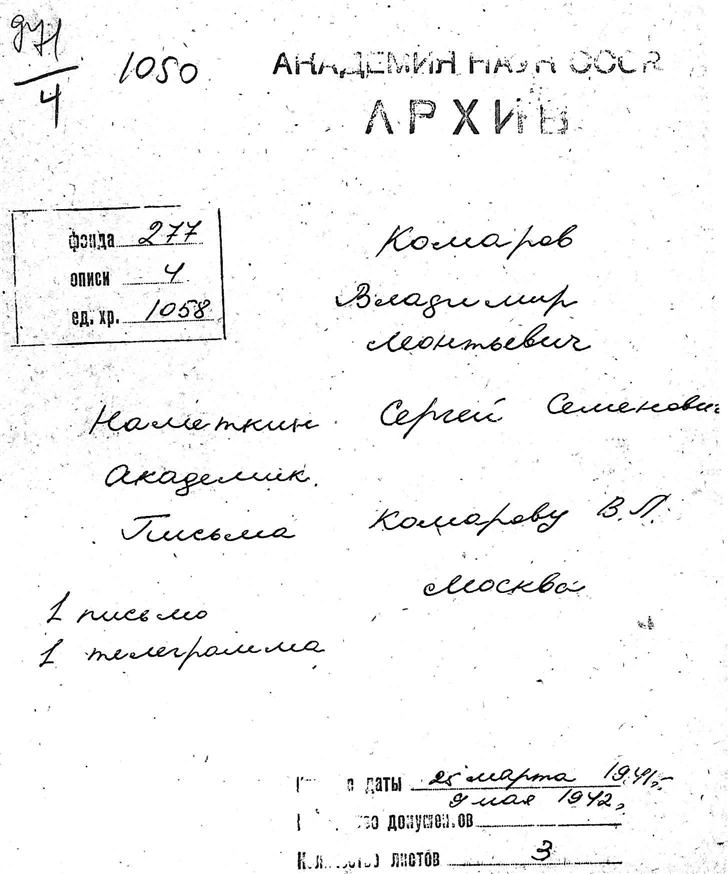 971
4
1050
АКАДЕМИЯ НАУК СССР
АРХИВ
фонда 277
описи 4
ед. хр. 1058
Комаров
Владимир
Леонтьевич
Наметкин Сергей Семенович
Академик.
Письма Комарову В.Л.
Москва
1 письмо
1 телеграмма
даты 25 марта 1941г.
9 мая 1942г.
документов
Количество листов 3